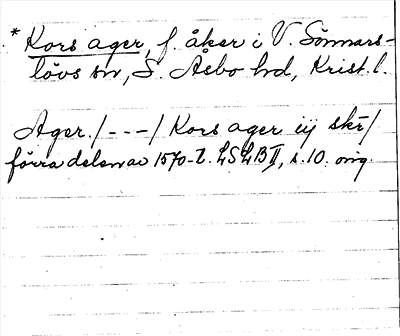 * Kors ager, f. åker i V. Sönnars-
lövs sn, S. Åsbo hd, Krist. l.
Ager. / - - - / Kors ager iij skr /
förra delen av 1570-t. LSLB II, s. 10. orig.